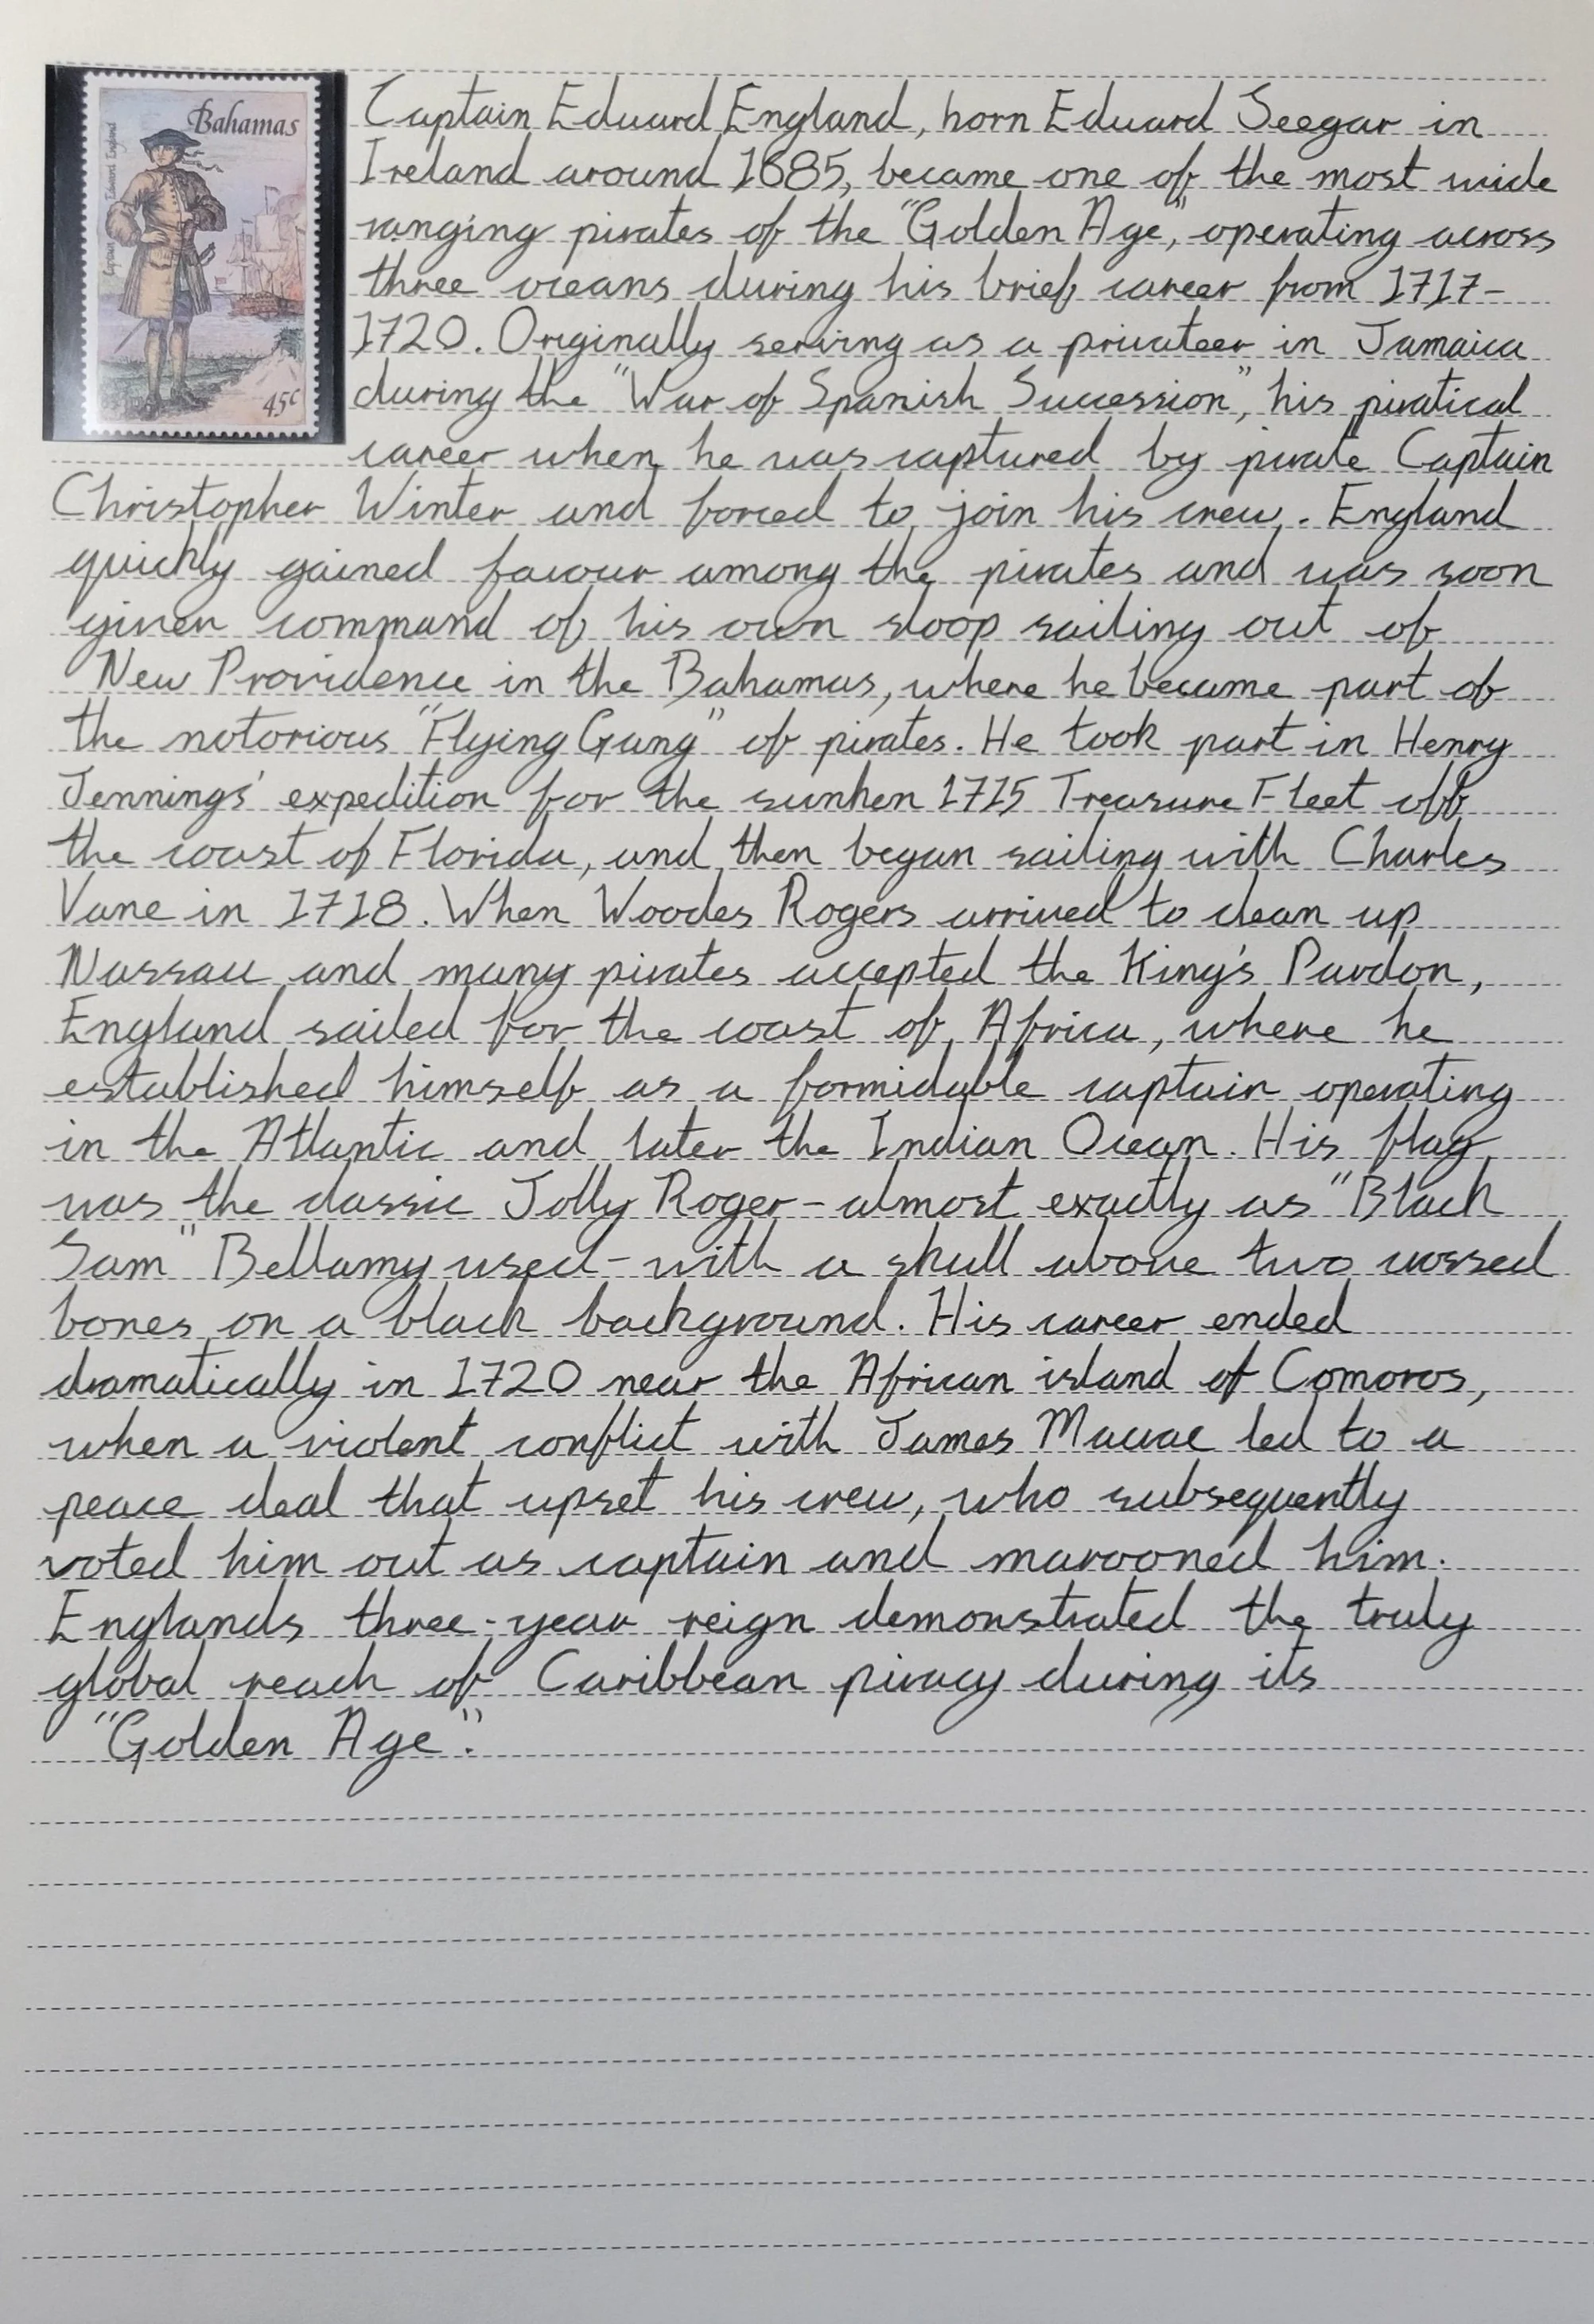 Bahamas
Captain Edward England
45c
Captain Edward England, born Edward Seegar in
Ireland around 1685, became one of the most wide
ranging pirates of the "Golden Age", operating across
three oceans during his brief career from 1717-
1720. Originally serving as a privateer in Jamaica
during the "War of Spanish Succession", his piratical
career when he was captured by pirate Captain
Christopher Winter and forced to join his crew. England
quickly gained favour among the pirates and was soon
given command of his own sloop sailing out of
New Providence in the Bahamas, where he became part of
the notorious "Flying Gang" of pirates. He took part in Henry
Jennings' expedition for the sunken 1715 Treasure Fleet off
the coast of Florida, and then began sailing with Charles
Vane in 1718. When Woodes Rogers arrived to clean up
Nassau and many pirates accepted the King's Pardon,
England sailed for the coast of Africa, where he
established himself as a formidable captain operating
in the Atlantic and later the Indian Ocean. His flag
was the classic Jolly Roger - almost exactly as "Black
Sam" Bellamy used - with a skull above two crossed
bones on a black background. His career ended
dramatically in 1720 near the African island of Comoros,
when a violent conflict with James Macrae led to a
peace deal that upset his crew, who subsequently
voted him out as captain and marooned him.
Englands three-year reign demonstrated the truly
global reach of Caribbean piracy during its
"Golden Age".